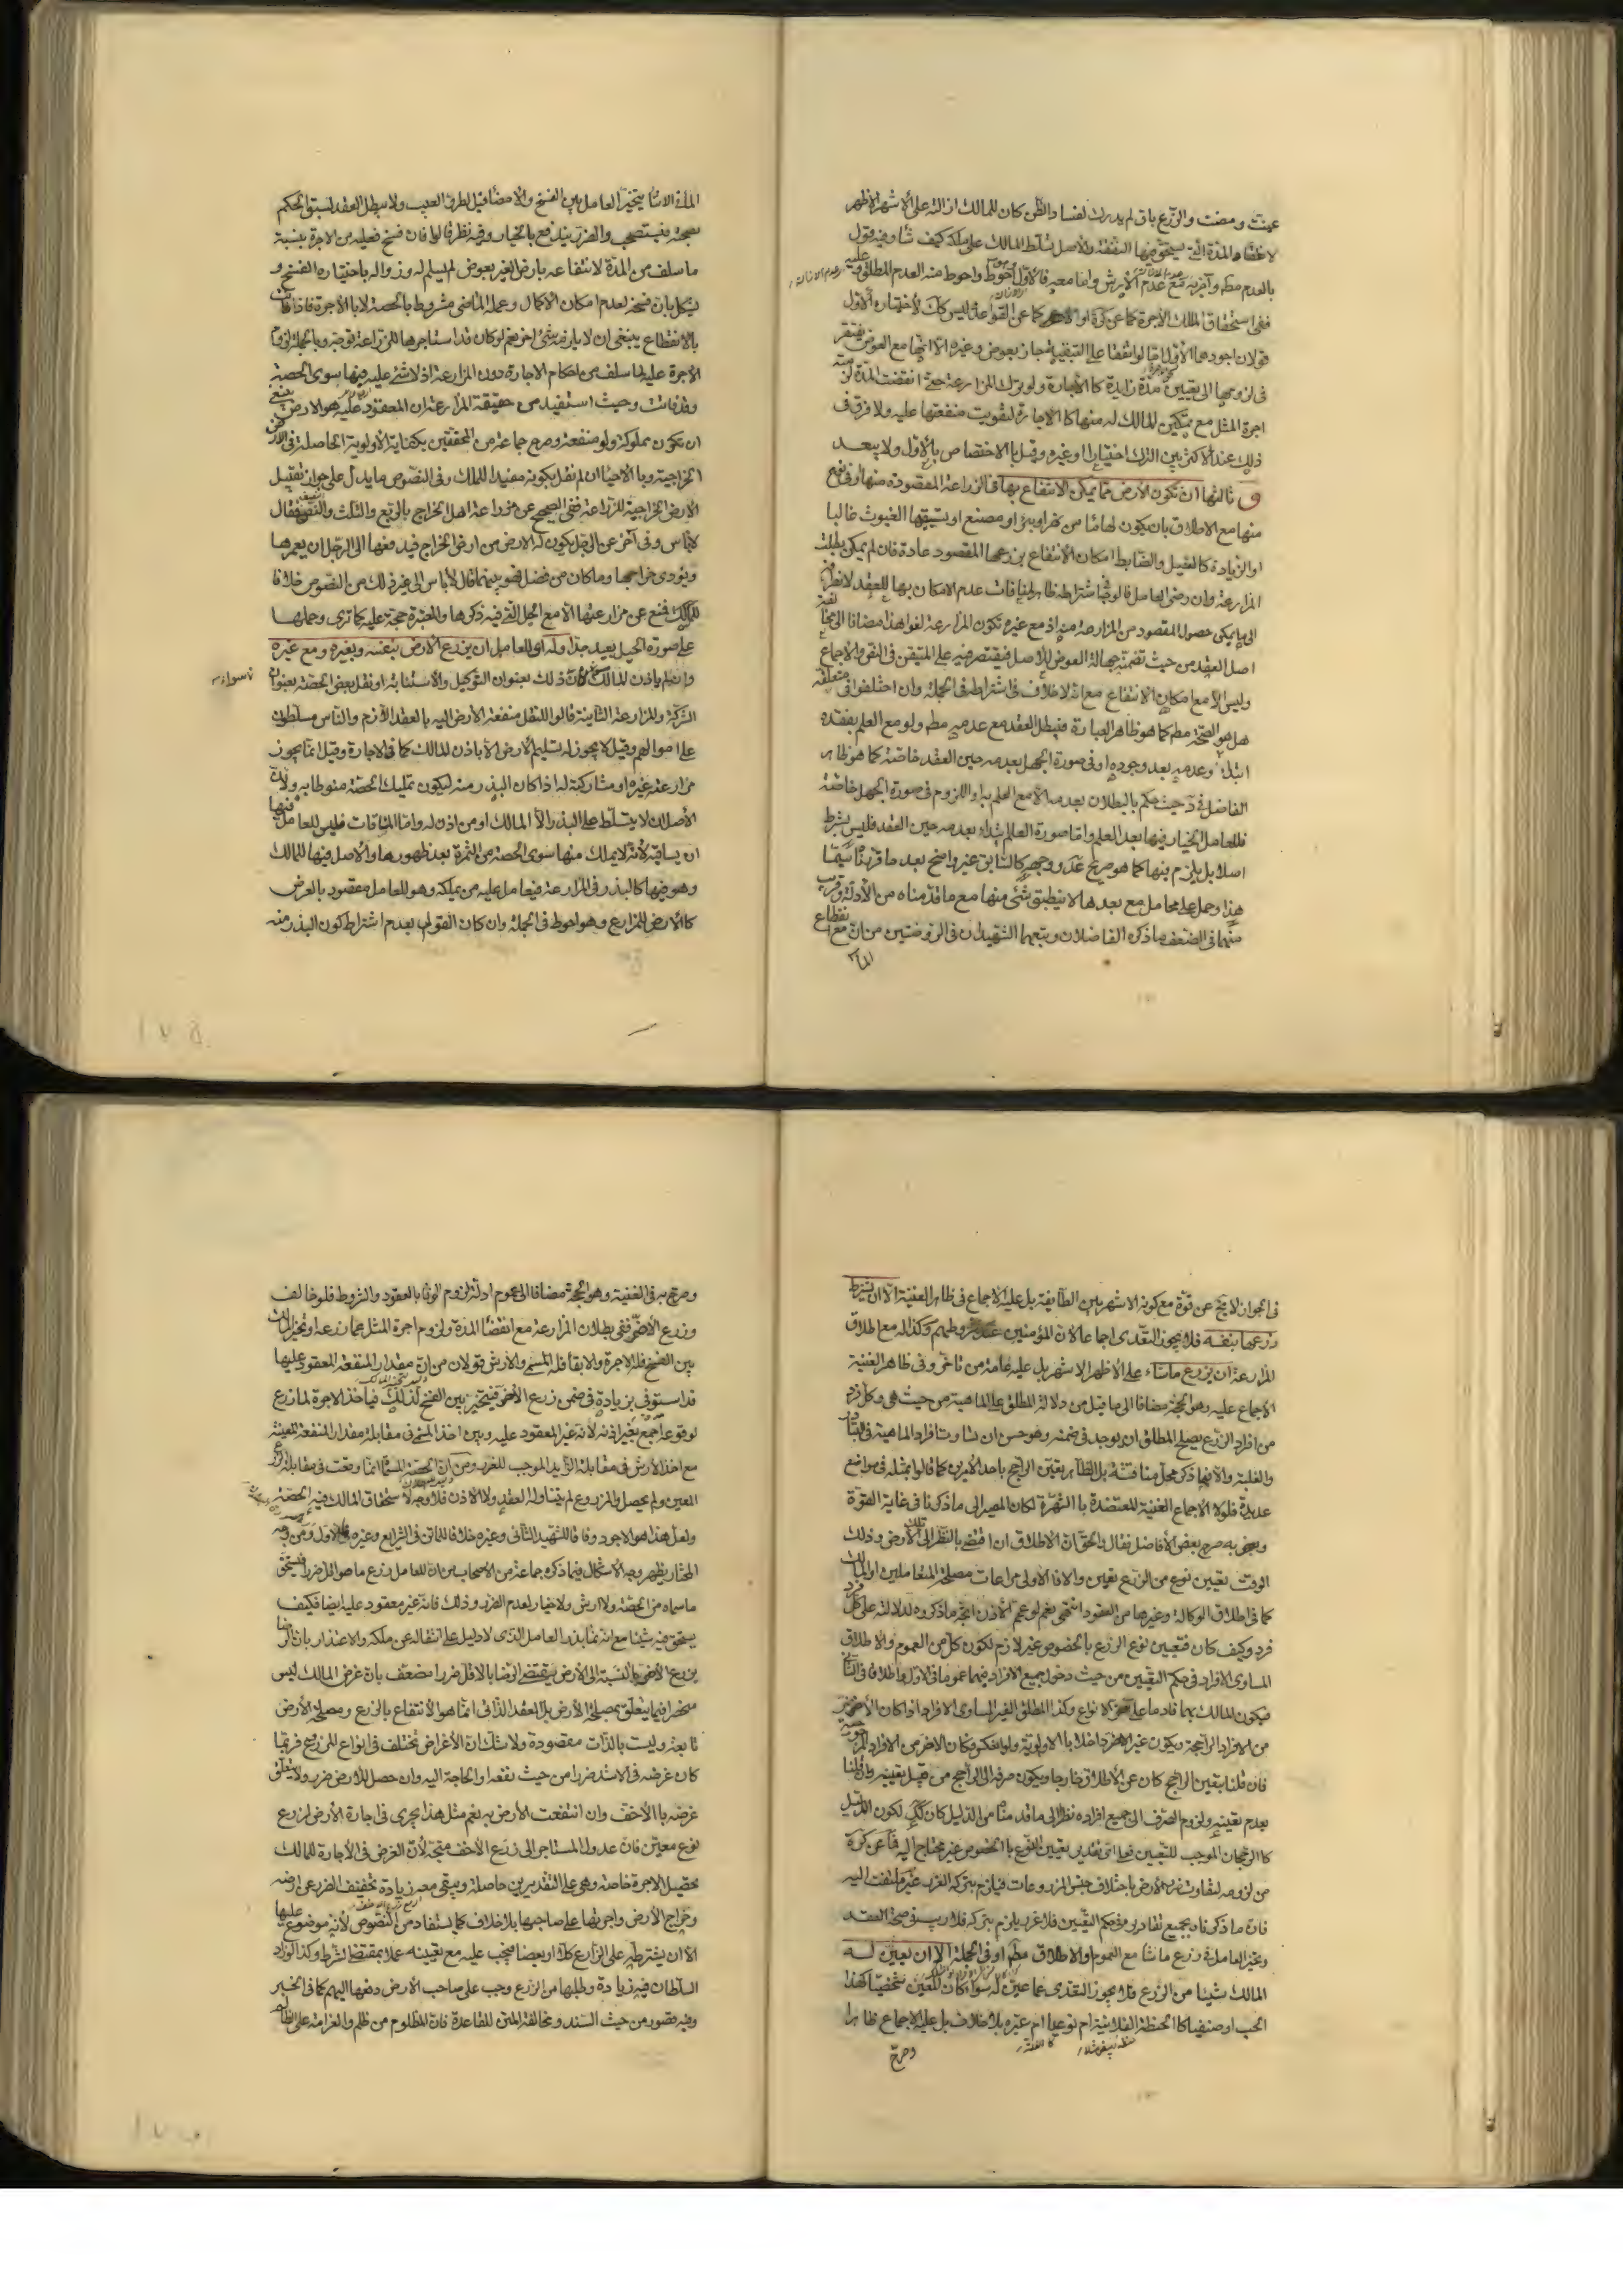 عينت ومضت والزرع باق لم يدرك لفساد الظن كان للمالك ازالته على الأشهر الأظهر
لانقضاء المدة التي يستحق فيها التبقية والأصل تسلط المالك على ملكه كيف شاء وفيه قول
بالعدم مطلقا وآخر به مع عدم الأرش واما معه فالأول أحوط واحوط منه العدم المطلق وعليه
ففي استحقاق المالك الأجرة كما عن كرة او لا كما عن القواعد
قولان اجودهما الأول اما لو اتفقا على التبقية جاز بعوض وغيره الا انها مع العوض يفتقر
في لزومها الى تعيين مدة زايدة كالأجارة ولو ترك المزارعة حتى انقضت المدة لزمته
اجرة المثل مع تمكين المالك له منها كالاجارة لتفويت منفعتها عليه ولا فرق في
ذلك عند الأكثر بين الترك اختيارا وغيره وقيل بالاختصاص بالأول ولا يبعد
و ثالثها ان تكون الأرض مما يمكن الانتفاع بها في الزراعة المقصودة منها او في نوع
منها مع الاطلاق بان يكون لها ماء من نهر او بئر او مصنع او يسقيها الغيوث غالبا
او الزيادة كالنيل والضابط امكان الانتفاع بزرعها المقصود عادة فان لم يمكن بطلت
المزارعة وان رضي العامل قالوا في اشتراطه ظاهر لمنافات عدم الامكان بها للعقد
الى ما يمكن حصول المقصود من المزارعة منه اذ مع غيره تكون المزارعة لغوا هذا مضافا الى مخالفة
اصل العقد من حيث تضمنه جهالة العوض للأصل فيقتصر فيه على المتيقن في النص والاجماع
وليس الا مع امكان الانتفاع مع انه لا خلاف في اشتراطه في الجملة وان اختلفوا في متعلقه
هل هو الصحة مطلقا كما هو ظاهر العبارة فيبطل العقد مع عدمه مطلقا ولو مع العلم بفقده
ابتداء وعدمه بعد وجوده او في صورة الجهل بعدمه حين العقد خاصة كما هو ظاهر
الفاضل في حيث حكم بالبطلان بعدمه الا مع العلم به او اللزوم في صورة الجهل خاصة
فللعامل الخيار فيها بعد العلم واما صورة العلم ابتداء بعدمه حين العقد فليس بشرط
اصلا بل يلزم فيها كما هو صريح عد ووجهه كالسابق غير واضح بعد ما قررناه سيما
هذا وحمل على محامل مع بعدها لا ينطبق شيء منها مع ما قدمناه من الأدلة وقريب
منهما في الضعف ما ذكره الفاضلان وتبعهما الشهيدان في الروضتين من ان مع انقطاع
الماء
الماء في الاثناء يتخير العامل بين الفسخ والامضاء قيل لطرو العيب ولا يبطل العقد لسبق الحكم
بصحته فيستصحب والضرر يندفع بالخيار وفيه نظر قالوا فان فسخ فعليه من الاجرة بنسبة
ما سلف من المدة لانتفاعه بارض الغير بعوض لم يسلم له وزواله باختياره الفسخ و
يشكل بان فسخه لعدم امكان الاكمال وعمله الماضي مشروط بالحصة لا بالأجرة فاذا فاتت
بالانقطاع ينبغي ان لا يلزمه شيء آخر نعم لو كان قد استاجرها للزراعة توجه وبالجملة لزوم
الاجرة عليه لما سلف من احكام الاجارة دون المزارعة اذ لا شيء عليه فيها سوى الحصة
وقد فاتت وحيث استفيد من حقيقة المزارعة ان المعقود عليه هو الارض ينبغي
ان تكون مملوكة ولو منفعة وصرح جماعة من المحققين بكفاية الأولوية الحاصلة في الارض
الخراجية وبالاحياء ان لم نقل بكونه مفيدا للملك وفي النصوص ما يدل على جواز تقبيل
الارض الخراجية للزراعة ففي الصحيح عن مزارعة اهل الخراج بالربع والثلث والنصف فقال
لا بأس وفي آخر عن الرجل يكون له الارض من ارض الخراج فيدفعها الى الرجل ان يعمرها
ويؤدي خراجها وما كان من فضل فهو بينهما قال لا بأس الى غير ذلك من النصوص خلافا
للمسالك فمنع عن مزارعتها الا مع الحيل التي فيه ذكرها والمعتبرة حجة عليه كما ترى وحملها
على صورة الحيل بعيد جدا وله اي للعامل ان يزرع الأرض بنفسه وبغيره ومع غيره
وان لم ياذن المالك كان ذلك بعنوان التوكيل والاستنابة او نقل بعض الحصة بعنوان
الشركة وللمزارعة الثانية قالوا لنقل منفعة الأرض اليه بالعقد اللازم والناس مسلطون
على اموالهم وقيل لا يجوز له تسليم الأرض الا باذن المالك كما في الاجارة وقيل انما يجوز
مزارعته غيره او مشاركته له اذا كان البذر منه ليكون تمليك الحصة منوطا به ولان
الأصل ان لا يتسلط على البذر الا المالك او من اذن له واما المساقات فليس للعامل فيها
ان يساقي لانه لا يملك منها سوى الحصة من الثمرة بعد ظهورها والأصل فيها للمالك
وهو فيها كالبذر في المزارعة فيعامل عليه من يملكه وهو للعامل مقصود بالعرض
كالأرض للمزارع وهو احوط في الجملة وان كان القول بعدم اشتراط كون البذر منه
في الجواز لا يخ عن قوة مع كونه الاشهر بين الطائفة بل عليه الاجماع في ظاهر الغنية الا ان يشترط
زرعها بنفسه فلا يجوز التعدي اجماعا لان المؤمنين عند شروطهم وكذا له مع اطلاق
المزارعة ان يزرع ما شاء على الأظهر الاشهر بل عليه عامة من تاخر وفي ظاهر الغنية
الاجماع عليه وهو الحجة مضافا الى ما قيل من دلالة المطلق على الماهية من حيث هي وكل فرد
من افراد الزرع يصلح المطلق ان يوجد في ضمنه وهو حسن ان تساوت افراد الماهية في التبادر
والغلبة والا ففيما ذكر محل مناقشة بل الظاهر تعين الراجح باحد الأمرين كما قالوا بمثله في مواضع
عديدة فلولا الاجماع الغنية المعتضدة بالشهرة لكان المصير الى ما ذكرنا في غاية القوة
وبه صرح بعض الأفاضل فقال والحق ان الاطلاق ان اقتضى بالنظر الى تلك الأرض وذلك
الوقت تعيين نوع من الزرع تعين والا فالاولى مراعات مصلحة المتعاملين او المالك
كما في اطلاق الوكالة وغيرها من العقود انتهى نعم لو عمم الأذن اتجه ما ذكروه لدلالته على كل فرد
فرد وكيف كان فتعيين نوع الزرع بالخصوص غير لازم لكون كل من العموم والاطلاق
المساوي الافراد في حكم التعيين من حيث دخول جميع الافراد فيهما عموما في الاول واطلاقا في الثاني
فيكون المالك بهما قادما على الانواع وكذا المطلق الغير المساوي الافراد اذا كان الأضر
من الافراد الراجحة ويكون غير الاضر داخلا بالاولوية ولو انعكس فكان الاضر من الافراد المرجوحة
فان قلنا بتعين الراجح كان عن الاطلاق خارجا ويكون صرفه الى الراجح من قبيل تعيينه وان قلنا
بعدم تعيينه ولزوم الصرف الى جميع افراده نظرا الى ما قدمناه من الدليل كان كك لكون الدليل
كالرجحان الموجب للتعيين فعلى اي تقدير تعيين النوع بالخصوص غير محتاج اليه فما عن كرة
من لزومه لتفاوت ضرر الأرض باختلاف جنس المزروعات فيلزم بتركه الغرر غير ملتفت اليه
فان ما ذكر فاد بجميع تقاديره حكم التعيين فلا غرر يلزم بتركه فلا ريب في صحة العقد
وتخير العامل في زرع ما شاء مع العموم والاطلاق مطلقا او في الجملة الا ان يعين له
المالك شيئا من الزرع فلا يجوز التعدي عما عين له سواء كان المعين شخصيا كهذا
الحب او صنفيا كالحنطة الفلانية ام نوعيا ام غيره بلا خلاف بل عليه الاجماع ظاهرا
وصرح
وصرح به في الغنية وهو الحجة مضافا الى عموم ادلة لزوم الوفاء بالعقود والشروط فلو خالف
وزرع الأضر ففي بطلان المزارعة مع انقضاء المدة ولزوم اجرة المثل عما زرعه او تخير المالك
بين الفسخ فله الاجرة والابقاء فله المسمى والأرش قولان من ان مقدار المنفعة المعقود عليها
قد استوفي بزيادة في ضمن زرع الأضر فيتخير بين الفسخ لذلك فياخذ الاجرة لما زرع
لوقوعه اجمع بغير اذنه لأنه غير المعقود عليه وبين اخذ المسمى في مقابلة مقدار المنفعة المعينة
مع اخذ الأرش في مقابلة الزايد الموجب للضرر ومن ان الحصة المسماة انما وقعت في مقابلة الزرع
المعين ولم يحصل والمزروع لم يتناوله العقد ولا الاذن فلا وجه لاستحقاق المالك فيه الحصة
ولعل هذا هو الاجود وفاقا للشهيد الثاني وغيره خلافا للماتن في الشرايع وغيره فالاول ومن وجه
المختار يظهر وجه الأشكال فيما ذكره جماعة من الأصحاب من ان للعامل زرع ما هو اقل ضررا فيستحق
ما سماه من الحصة ولا ارش ولا خيار لعدم الضرر وذلك فانه غير معقود عليه ايضا فكيف
يستحق فيه شيئا مع انه نماء بذر العامل الذي لا دليل على انتقاله عن ملكه والاعتذار بان الرضا
بزرع الأضر بالنسبة الى الأرض يقتضي الرضا بالاقل ضررا مضعف بان غرض المالك ليس
منحصرا فيما يتعلق بمصلحة الأرض بل القصد الذاتي انما هو الأنتفاع بالزرع ومصلحة الأرض
تابعة وليست بالذات مقصودة ولا شك ان الأغراض تختلف في انواع المزروع فربما
كان غرضه في الاشد ضررا من حيث نفعه او الحاجة اليه وان حصل للأرض ضرر ولا يتعلق
غرضه بالأخف وان انتفعت الأرض به نعم مثل هذا يجري في اجارة الأرض لزرع
نوع معين فان عدول المستاجر الى زرع الاخف متجه لأن الغرض في الأجارة للمالك
تحصيل الاجرة خاصة وهي على التقديرين حاصلة ويبقى معه زيادة تخفيف الضرر عن ارضه
وخراج الأرض واجرتها على صاحبها بلا خلاف كما يستفاد من النصوص لأنه موضوع عليها
الا ان يشترطه على الزارع كلا او بعضا فيجب عليه مع تعيينه عملا بمقتضى الشرط وكذا لو زاد
السلطان فيه زيادة وطلبها من الزرع وجب على صاحب الأرض دفعها اليهم كما في الخبر
وفيه قصور من حيث السند ومخالفة المتن للقاعدة فان المظلوم من ظلم والغرامة على الظالم